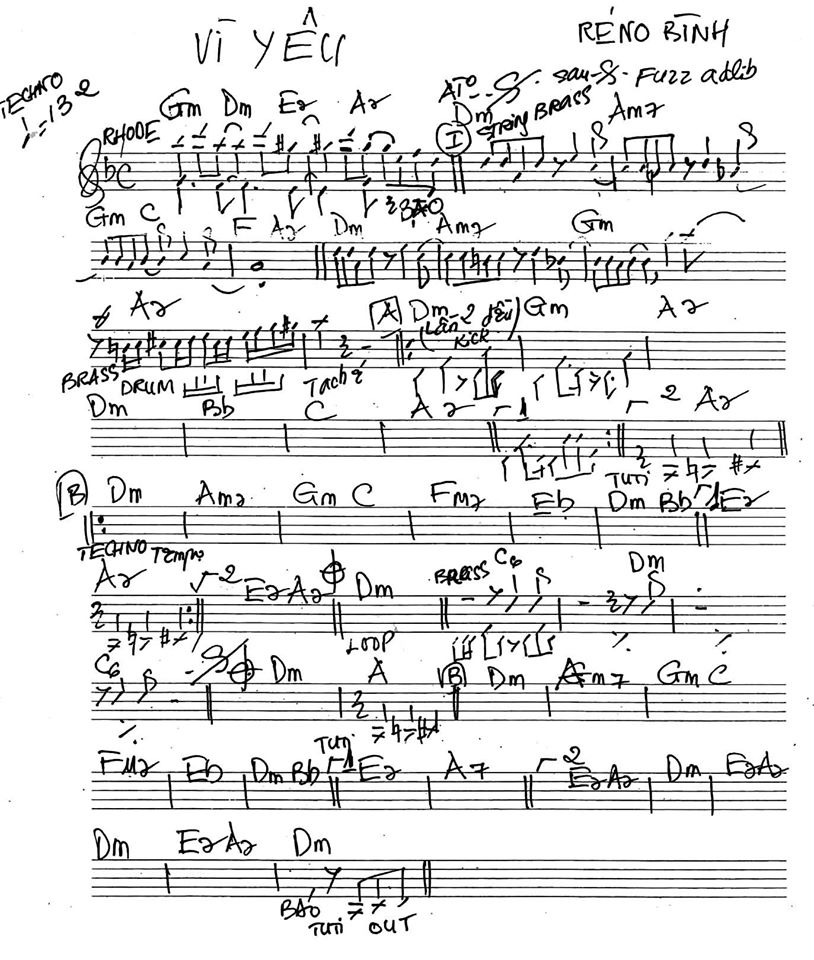 VÌ YÊU
RÉNO BÌNH
TECHNO
♩=132
ATO -- 𝄋 · sau-𝄋· Fuzz adlib
Gm Dm E7 A7 Dm Am7
RHODE I String BRASS
BÁO
Gm C F A7 Dm Am7 Gm
A7 A Dm Gm A7
(Lần-2 đều) Kick
BRASS DRUM Taché
Dm Bb C A7 1 2 A7
TUTI
B Dm Am7 Gm C FM7 Eb Dm Bb 1 E7
TECHNO Tempo
A7 2 E7 A7 Dm BRASS C6 Dm
LOOP
C6 Dm A B Dm Am7 Gm C
TUTI
FM7 Eb Dm Bb 1 E7 A7 2 E7 A7 Dm E7 A7
Dm E7 A7 Dm
BÁO TUTI OUT